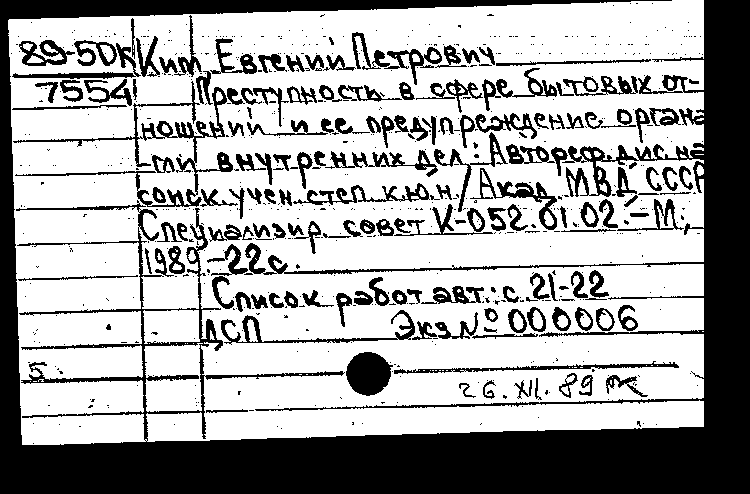 89-5DK Ким, Евгений Петрович
7554 Преступность в сфере бытовых от-
ношений и ее предупреждение органа
-ми внутренних дел: Автореф. дис. на
соиск. учен. степ. к.ю.н / Акад МВД СССР
Специализир. совет К-052.01.02.-М,
1989.-22с.
Список работ авт.: с. 21-22
ДСП Экз № 000006
5
26.XII.89